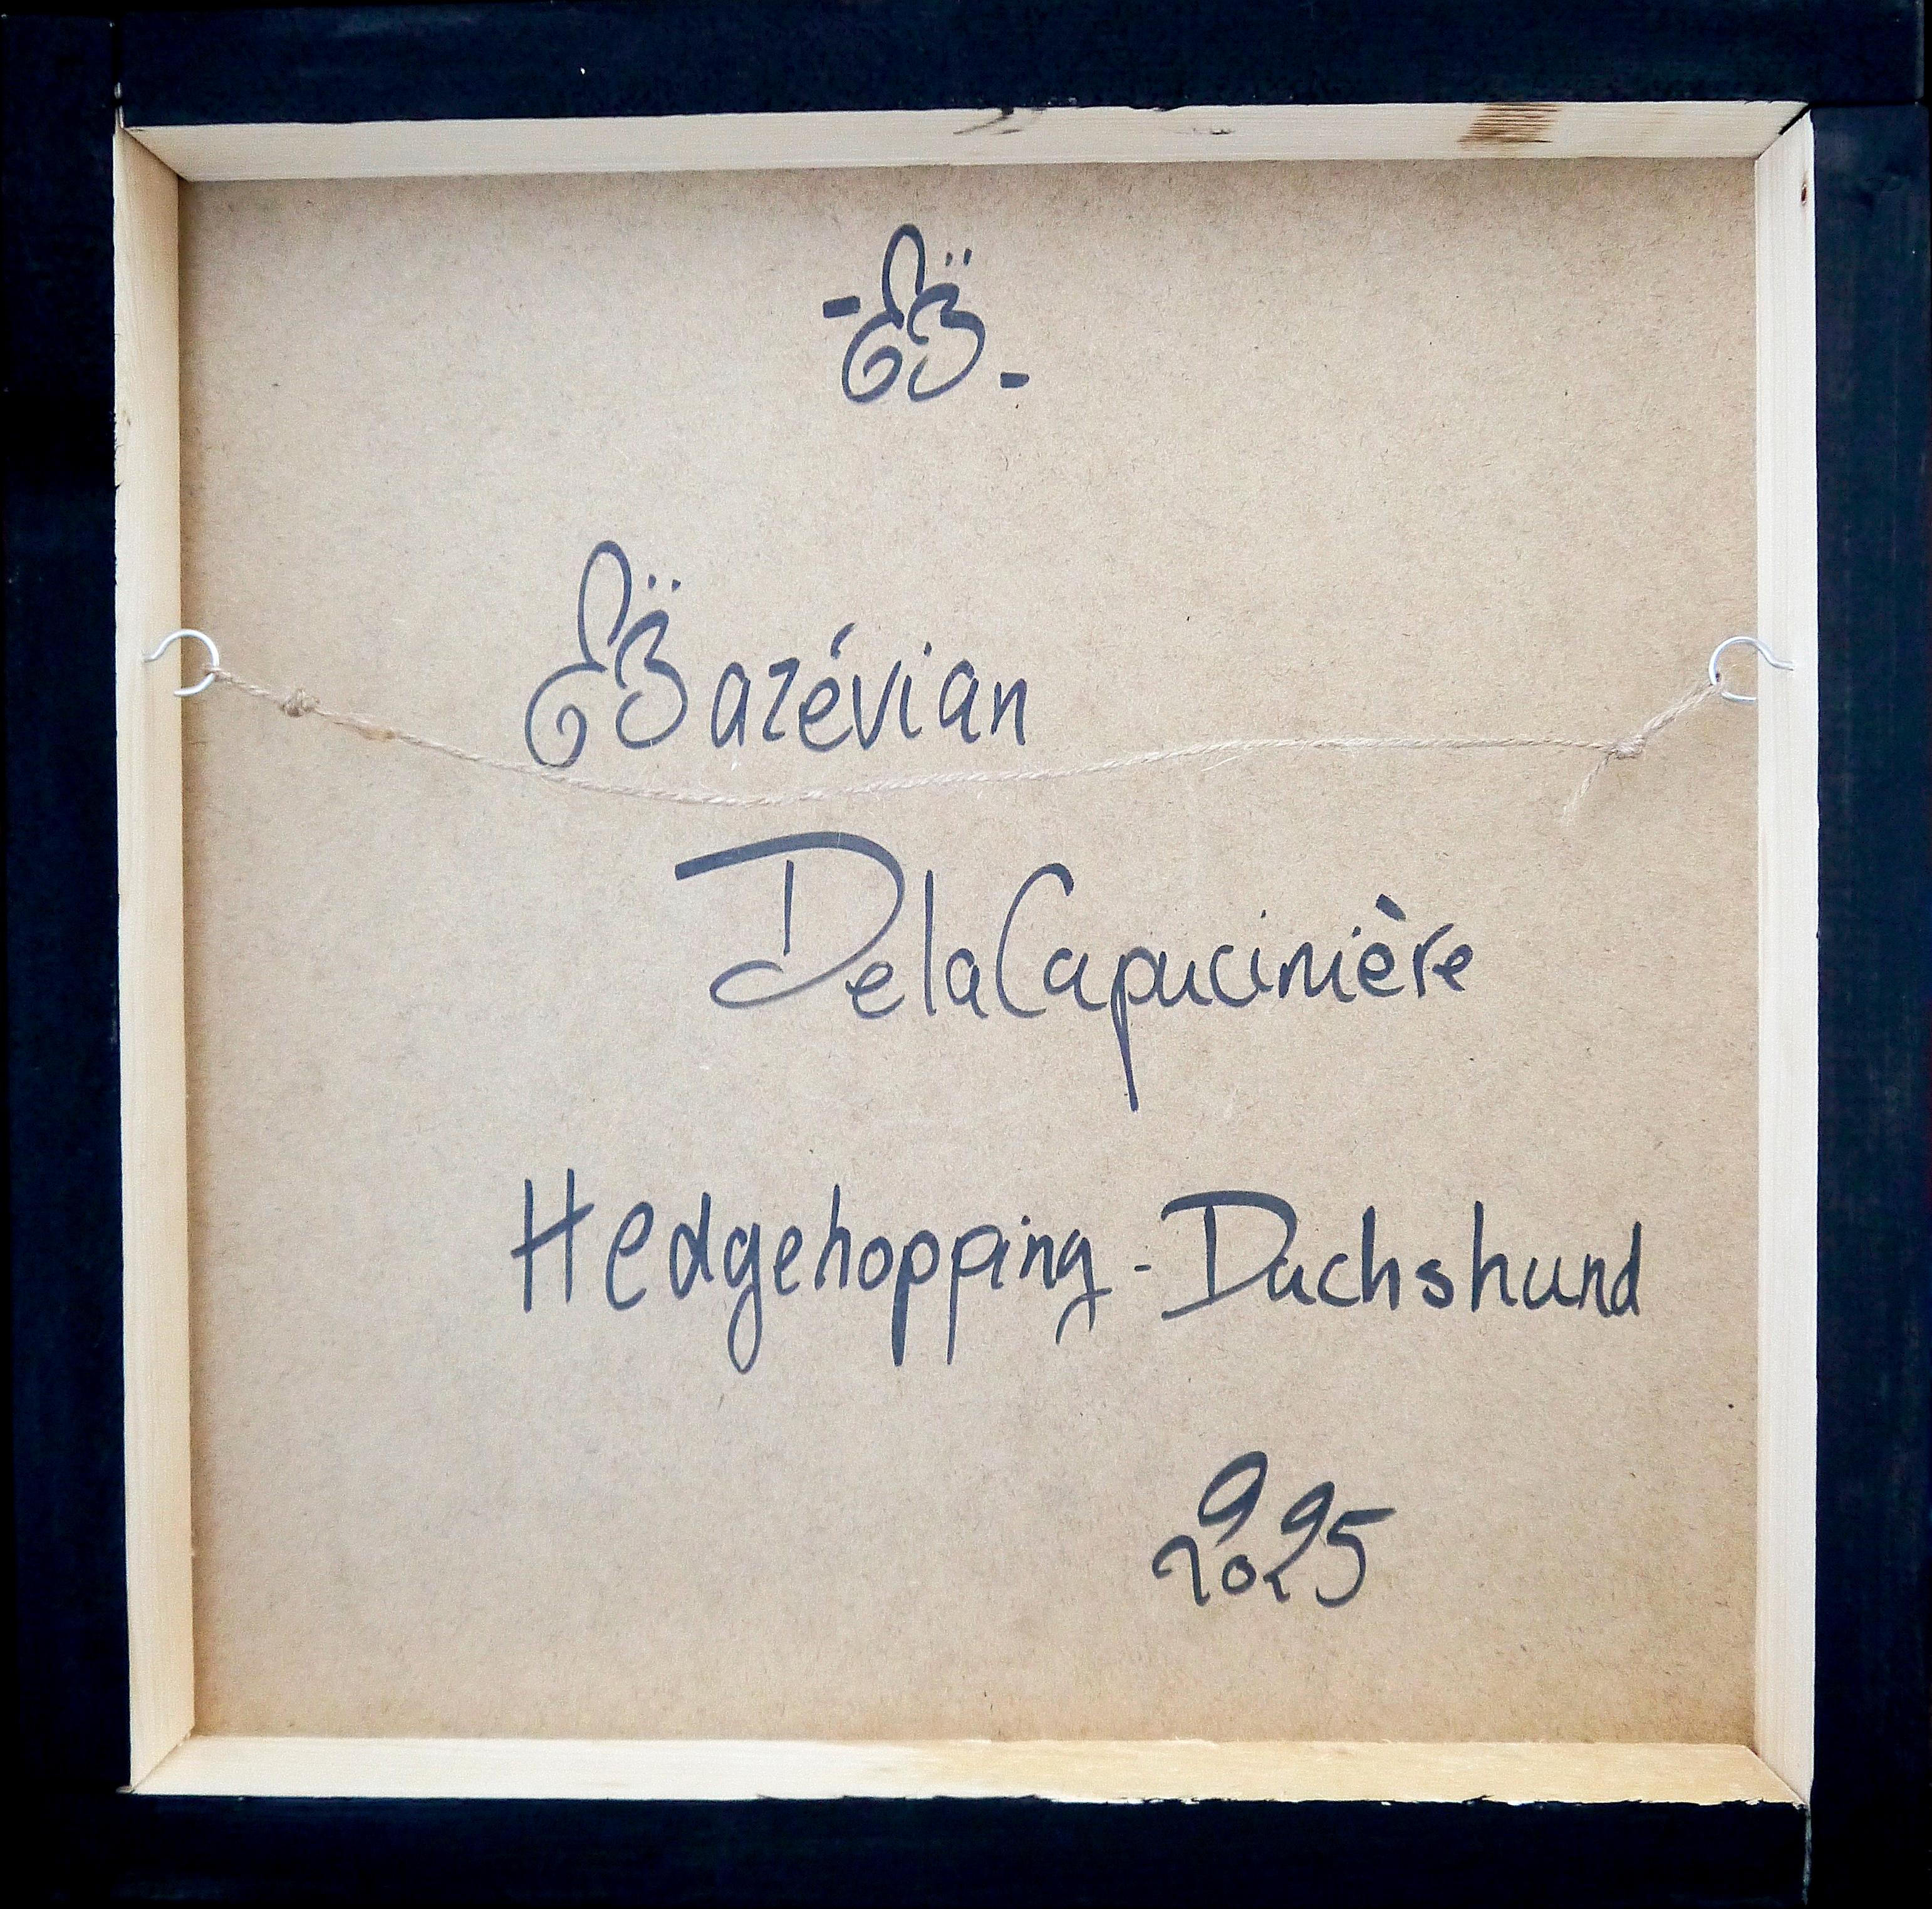 Bazévian
DelaCapucinière
Hedgehopping-Dachshund
2025